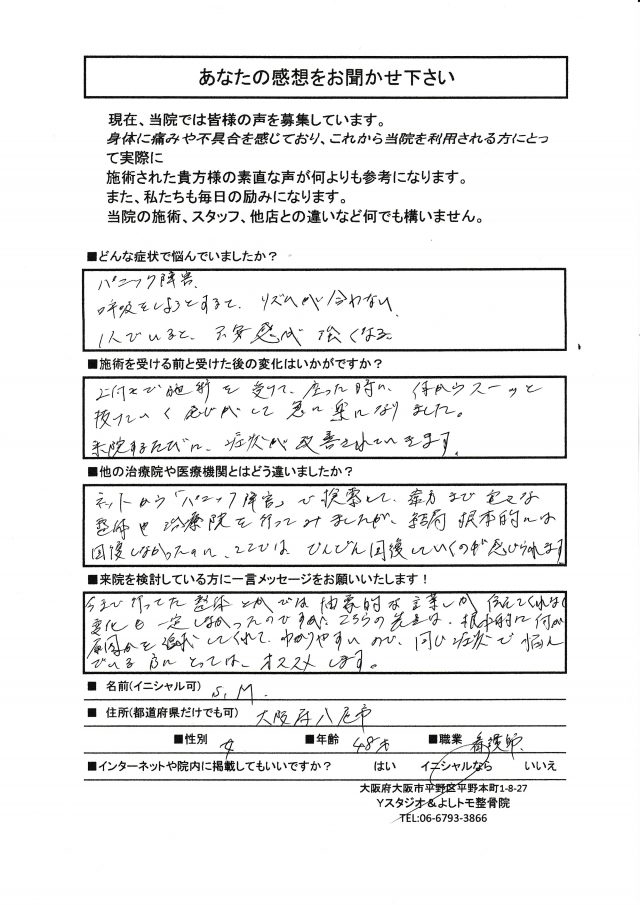 あなたの感想をお聞かせ下さい
現在、当院では皆様の声を募集しています。
身体に痛みや不具合を感じており、これから当院を利用される方にとっ
て実際に
施術された貴方様の素直な声が何よりも参考になります。
また、私たちも毎日の励みになります。
当院の施術、スタッフ、他店との違いなど何でも構いません。
■どんな症状で悩んでいましたか？
パニック障害
呼吸をしようとすると、リズムが合わない
1人でいると、不安感が強くなる
■施術を受ける前と受けた後の変化はいかがですか？
で施術を受けて、座った時に、体からスーッと
抜けていく感じがして急に楽になりました。
来院するたびに、症状が改善されていきます。
■他の治療院や医療機関とはどう違いましたか？
ネットから「パニック障害」で検索して、
整体や治療院を行ってみましたが、結局根本的には
回復しなかったのに、ここでは、どんどん回復していくのが感じられます
■来院を検討している方に一言メッセージをお願いいたします！
今まで行ってた整体とかでは抽象的な言葉しか伝えてくれなく
変化も一定しなかったのですが、こちらの先生は、根本的に何が
原因かを追求してくれて、わかりやすいので、同じ症状で悩ん
でいる方にとっては、オススメします。
■ 名前(イニシャル可) S.M.
■ 住所(都道府県だけでも可) 大阪府八尾市
■性別 女 ■年齢 48才 ■職業 看護師
■インターネットや院内に掲載してもいいですか？ はい イニシャルなら いいえ
大阪府大阪市平野区平野本町1-8-27
Yスタジオ＆よしトモ整骨院
TEL:06-6793-3866